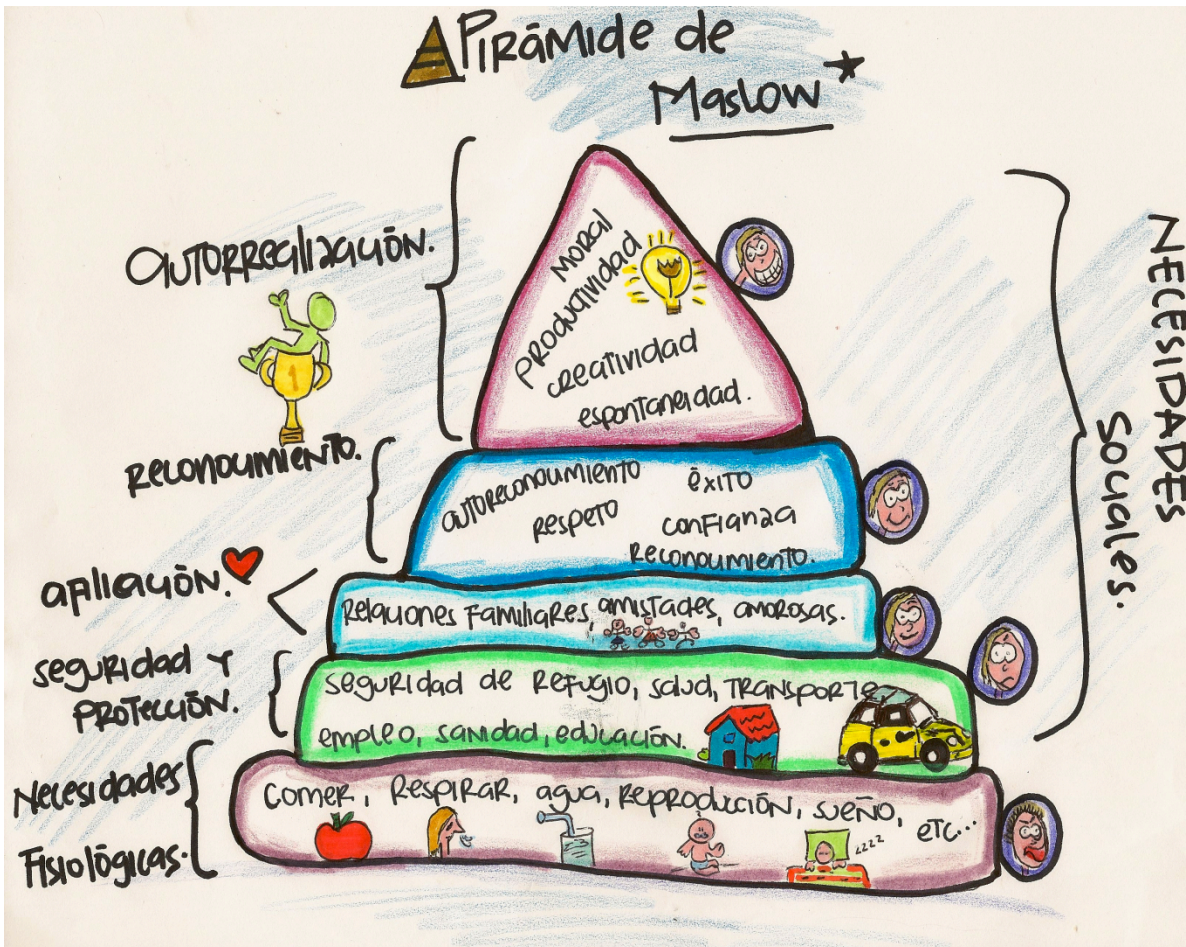 Pirámide de
Maslow
autorrealización.
moral
productividad
creatividad
espontaneidad.
1
reconocimiento.
autoreconocimiento
éxito
respeto
confianza
reconocimiento.
afiliación.
Relaciones Familiares, amistades, amorosas.
seguridad y
protección.
seguridad de Refugio, salud, transporte,
empleo, sanidad, educación.
Necesidades
Fisiológicas.
comer, Respirar, agua, Reproducción, sueño,
etc...
zzzz
NECESIDADES
sociales.